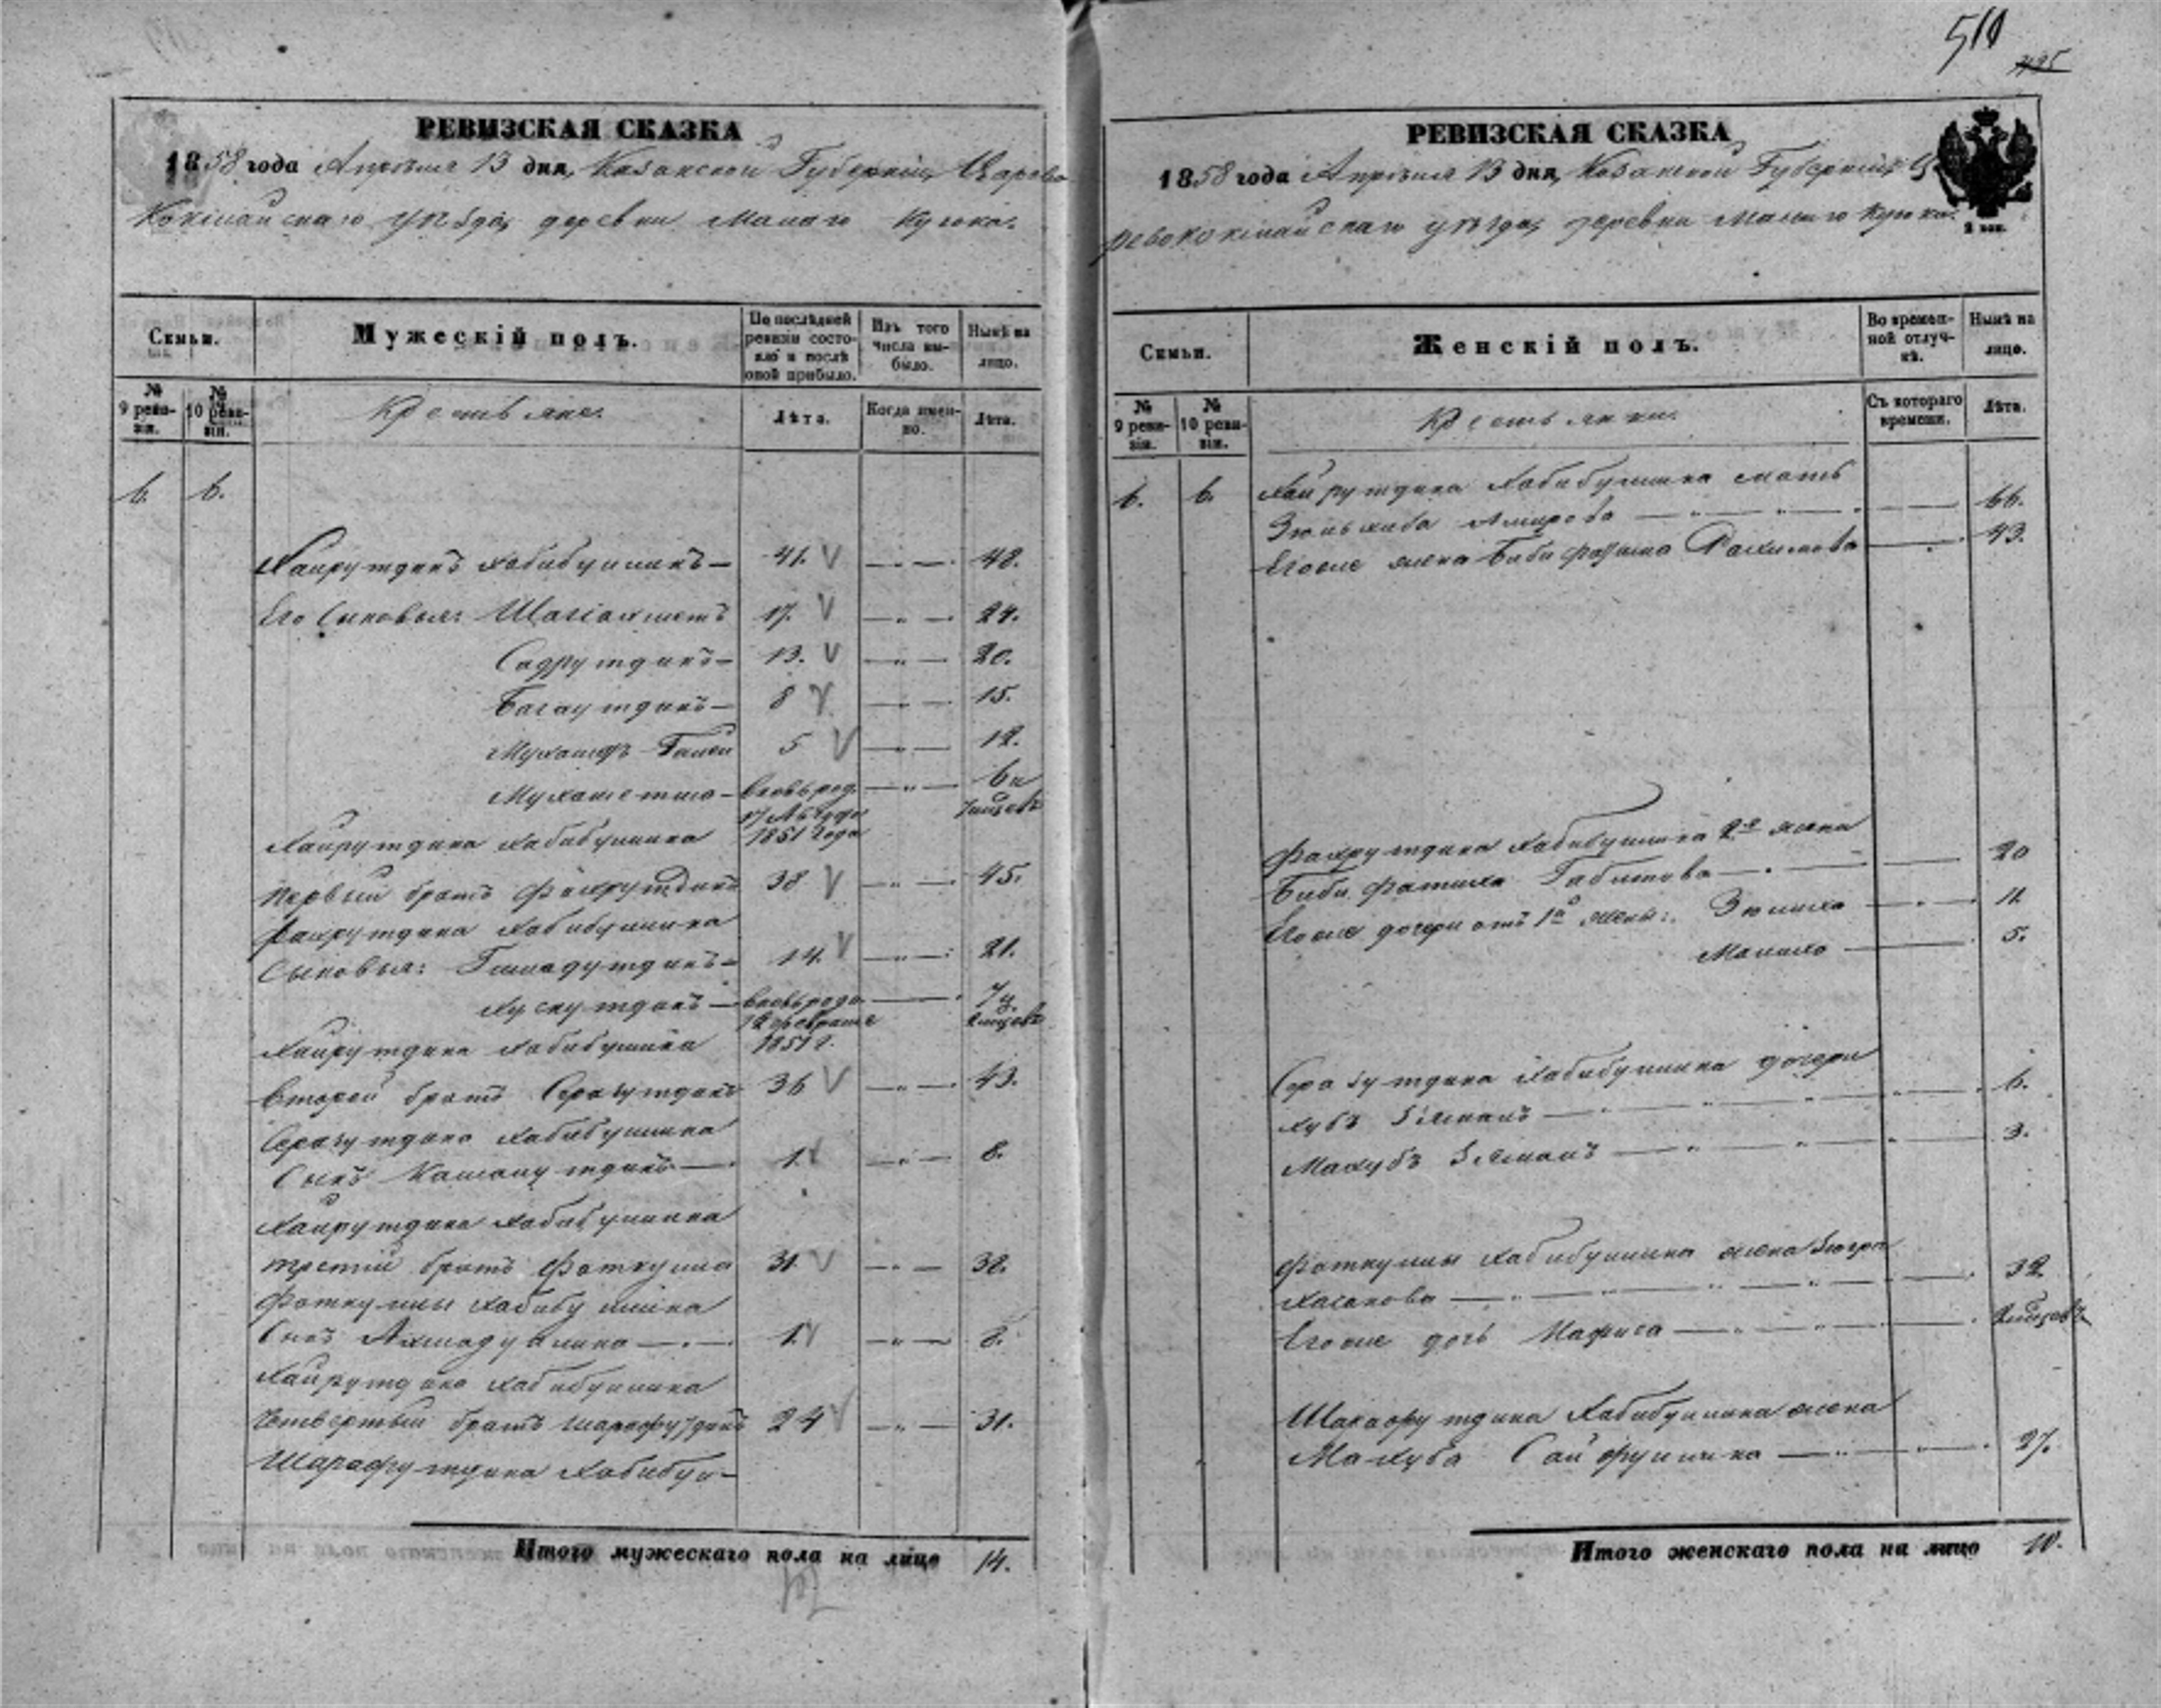 511
495
РЕВИЗСКАЯ СКАЗКА
1858 года Апреля 13 дня, Казанской Губернии, Царево
Кокшайскаго уѣзда, деревни Малаго Кугюка.
Семьи.
Мужескій полъ.
По послѣдней ревизіи состояло и послѣ оной прибыло.
Изъ того числа выбыло.
Нынѣ на лицо.
№ 9 ревизіи.
№ 10 ревизіи.
Крестьяне.
Лѣта.
Когда именно.
Лѣта.
6. 6.
Хайрутдинъ Хабибуллинъ — 41. — " — 48.
Его Сыновья: Шагіахметъ 17. — " — 24.
Садрутдинъ — 13. — " — 20.
Багаутдинъ — 8 — " — 15.
Мухамедъ Галей 5 — " — 12.
Мухаметша — вновьрод. — " — 6 и
1851 года 7 мѣсцовъ
Хайрутдина Хабибуллина
Первый братъ Фахрутдинъ 38 — " — 45.
Фахрутдина Хабибуллина
Сыновья: Гимадутдинъ — 14. — " — 21.
Хуснутдинъ — вновьрод. — " — 7 и
12 февраля 2 мѣсцовъ
Хайрутдина Хабибуллина 1851 г.
Второй братъ Серазутдинъ 36 — " — 43.
Серазутдина Хабибуллина
Сынъ Камалутдинъ — 1. — " — 8.
Хайрутдина Хабибуллина
третій братъ Фаткулла 31. — " — 38.
Фаткуллы Хабибуллина
Сынъ Ахмадуллина — . — 1. — " — 8.
Хайрутдина Хабибуллина
Четвертый братъ Шарафутдинъ 24 — " — 31.
Шарафутдина Хабибул-
Итого мужескаго пола на лицо 14.
РЕВИЗСКАЯ СКАЗКА
1858 года Апреля 13 дня, Казанской Губерніи, Ца
ревококшайскаго уѣзда, деревни Малаго Кугюка.
2 коп.
Семьи.
Женскій полъ.
Во временной отлучкѣ.
Нынѣ на лице.
№ 9 ревизіи.
№ 10 ревизіи.
Крестьянки.
Съ котораго времени.
Лѣта.
6. 6. Хайрутдина Хабибуллина мать
Зюльхиба Амирова — " — " — 66.
Его же жена Биби Фазыма Рахимова — 43.
Фахрутдина Хабибуллина 2я жена
Биби Фатиха Габитова — . — 20
Его же дочери отъ 1й жены: Зюлиха — " — 11
Малиха — 5.
Серазутдина Хабибуллина дочери
Хубъ Зяманъ — " — " — 6.
Махубъ Зяманъ — " — " — 3.
Фаткуллы Хабибуллина жена Зюгра
Хасанова — " — " — 32
Его же дочь Нафиса — " — " — 2 мѣсцовъ
Шарафутдина Хабибуллина жена
Махуба Сайфуллина — " — " — 27.
Итого женскаго пола на лицо 10.